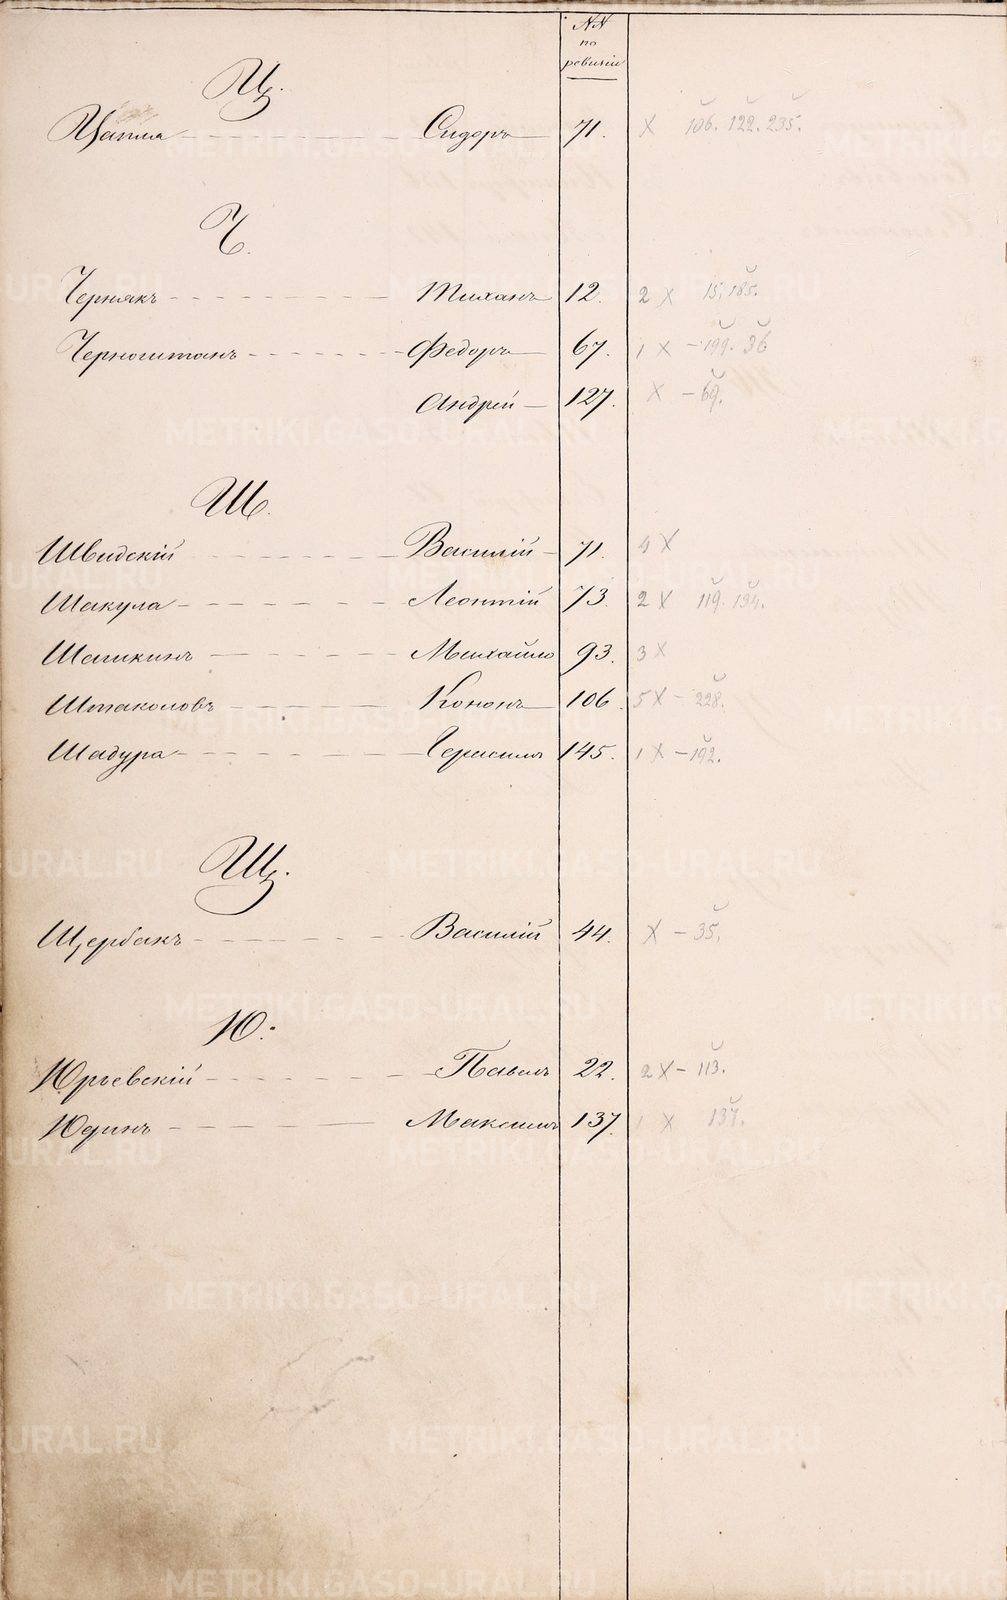 NN
по
ревизіи
Ц.
Цапма Сидоръ 71. X 106. 122. 235.
Ч.
Чернякъ Тиханъ 12. 2 X 15, 185.
Черноштанъ Федоръ 67. 1 X – 199. 36
Андрей 127. X – 69.
Ш.
Швидскій Василій 71. 4 X
Шакула Леонтій 73. 2 X 119. 134.
Шашкинъ Михайло 93. 3 X
Шпаколовъ Кононъ 106. 5 X – 228.
Шадура Герасимъ 145. 1 X – 192.
Щ.
Щербакъ Василій 44. X – 35.
Ю.
Юрьевскій Павелъ 22. 2 X – 113.
Юдинъ Максимъ 137. 1 X 137.
METRIKI.GASO-URAL.RU